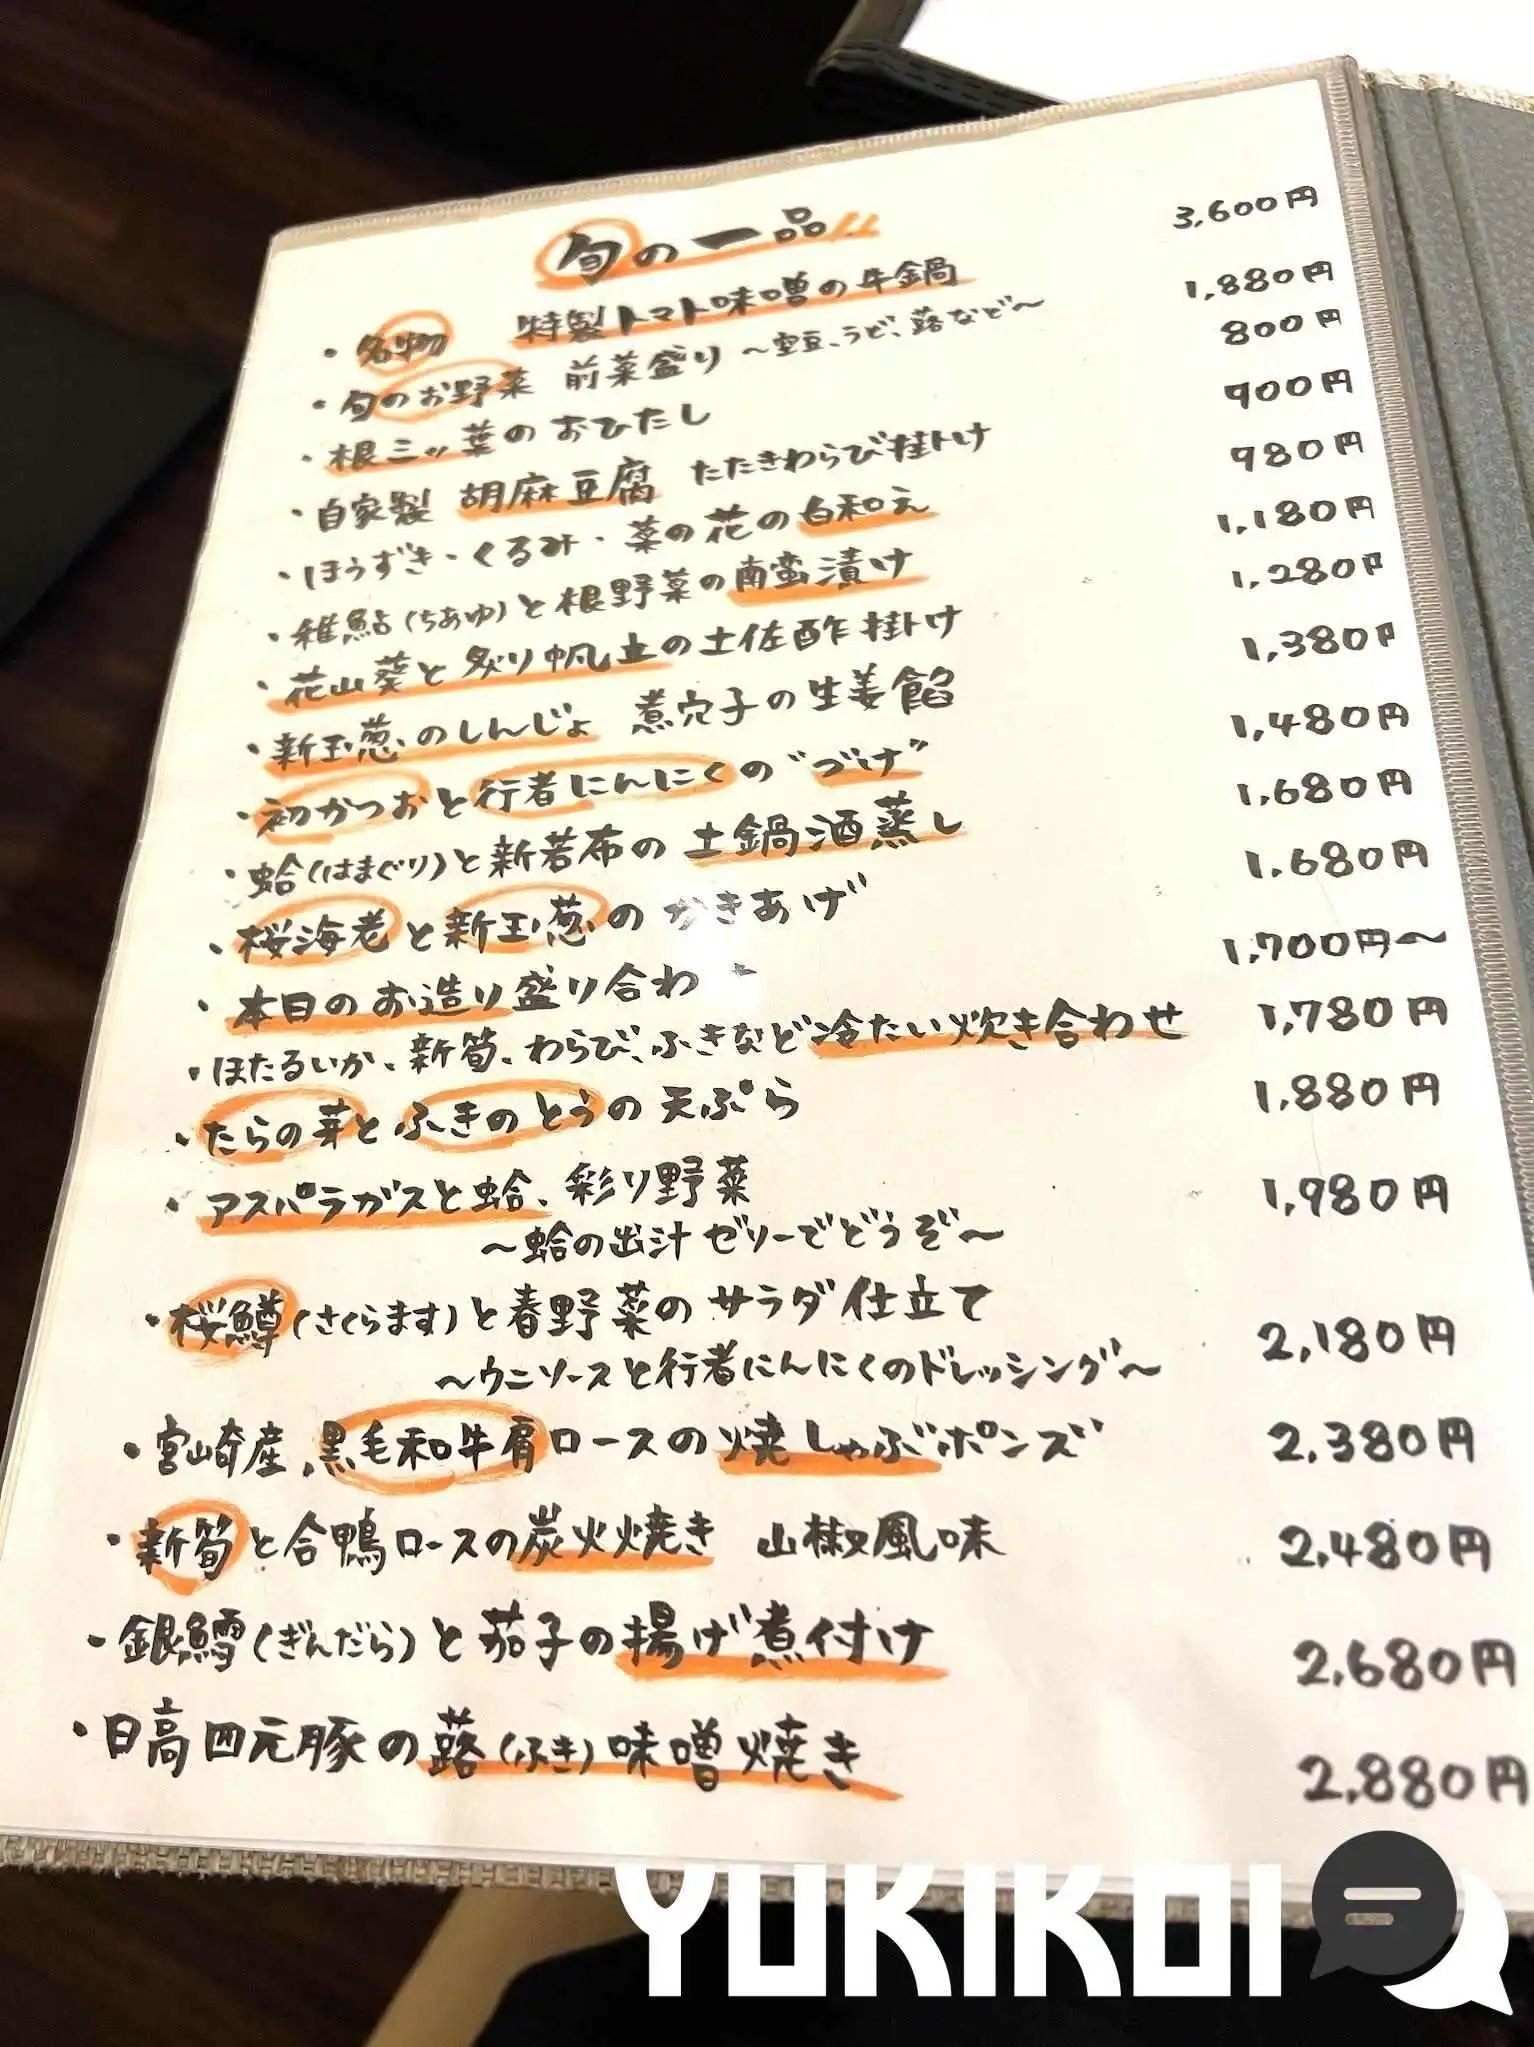 旬の一品!!
・名物 特製トマト味噌の牛鍋 3,600円
・旬のお野菜 前菜盛り ～空豆、うど、蕗など～ 1,880円
・根三ッ葉のおひたし 800円
・自家製 胡麻豆腐 たたきわらび掛け 900円
・ほうずき・くるみ・菜の花の白和え 980円
・稚鮎(ちあゆ)と根野菜の南蛮漬け 1,180円
・花山葵と炙り帆立の土佐酢掛け 1,280円
・新玉葱のしんじょ 煮穴子の生姜餡 1,380円
・初かつおと行者にんにくの"づけ" 1,480円
・蛤(はまぐり)と新若布の土鍋酒蒸し 1,680円
・桜海老と新玉葱のかきあげ 1,680円
・本日のお造り盛り合わ 1,700円～
・ほたるいか、新筍、わらび、ふきなど冷たい炊き合わせ 1,780円
・たらの芽とふきのとうの天ぷら 1,880円
・アスパラガスと蛤、彩り野菜 1,980円
～蛤の出汁ゼリーでどうぞ～
・桜鱒(さくらます)と春野菜のサラダ仕立て 2,180円
～ウニソースと行者にんにくのドレッシング～
・宮崎産、黒毛和牛肩ロースの焼しゃぶポンズ 2,380円
・新筍と合鴨ロースの炭火焼き 山椒風味 2,480円
・銀鱈(ぎんだら)と茄子の揚げ煮付け 2,680円
・日高四元豚の蕗(ふき)味噌焼き 2,880円
YUKIKOI